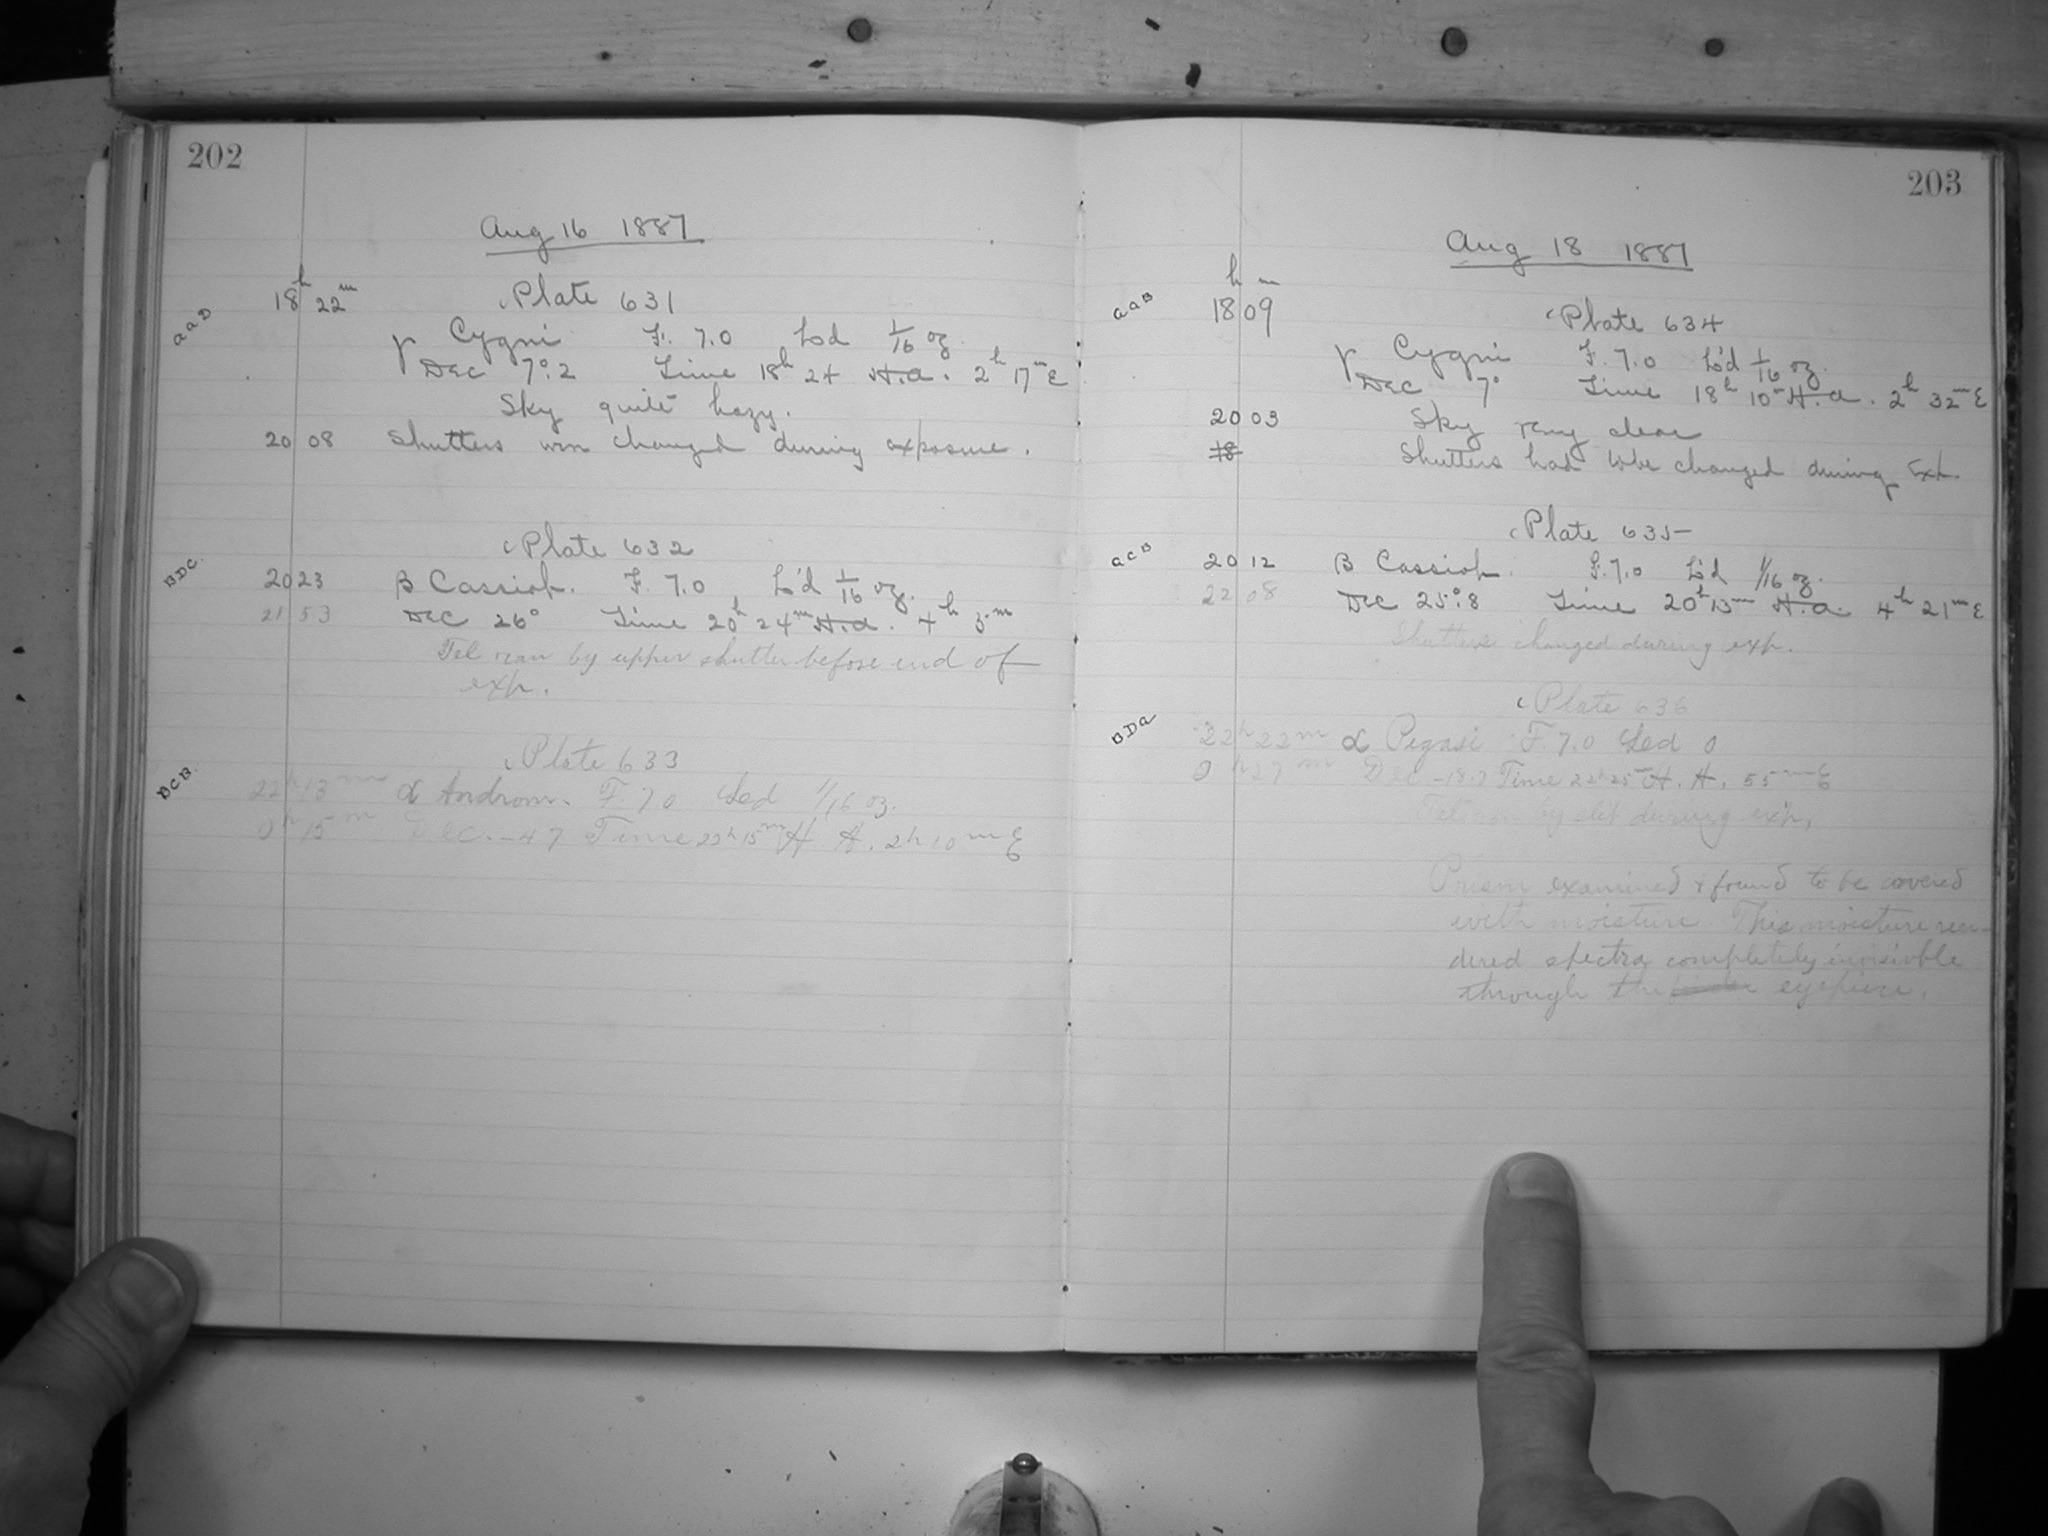 202
Aug 16 1887
18h 22m Plate 631
a a D
γ Cygni F. 7.0 L'd 1/16 oz.
Dec 7°.2 Time 18h 24 H.a. 2h 17m E
Sky quite hazy.
20 08 Shutters were changed during exposure.
Plate 632
BDC.
20 23 β Cassiop. F. 7.0, L'd 1/16 oz.
21 53 Dec 26° Time 20h 24m H.a. 4h 5m
Tel ran by upper shutter before end of
exp.
Plate 633
DCB.
22h 13m α Androm. F. 7.0 Led 1/16 oz.
0h 15m Dec. -4.7 Time 22h 15m H. A. 2h 10m E
203
Aug 18 1887
h m
a a B
18 09 Plate 634
γ Cygni F. 7.0 L'd 1/16 oz.
Dec 7° Time 18h 10m H.a. 2h 32m E
20 03 Sky very clear
18 Shutters had to be changed during Exp.
Plate 635
a C B
20 12 β Cassiop. F. 7.0 L'd 1/16 oz.
22 08 Dec 25°.8 Time 20h 13m H.a. 4h 21m E
Shutters changed during exp.
Plate 636
BDa
22h 22m α Pegasi F. 7.0 Led 0
0h 27m Dec -18.7 Time 22h 25m H. A. 55m E
by slit during exp.
Prism examined & found to be covered
with moisture. This moisture ren-
dered spectra completely invisivble
through the finder eyepiece.